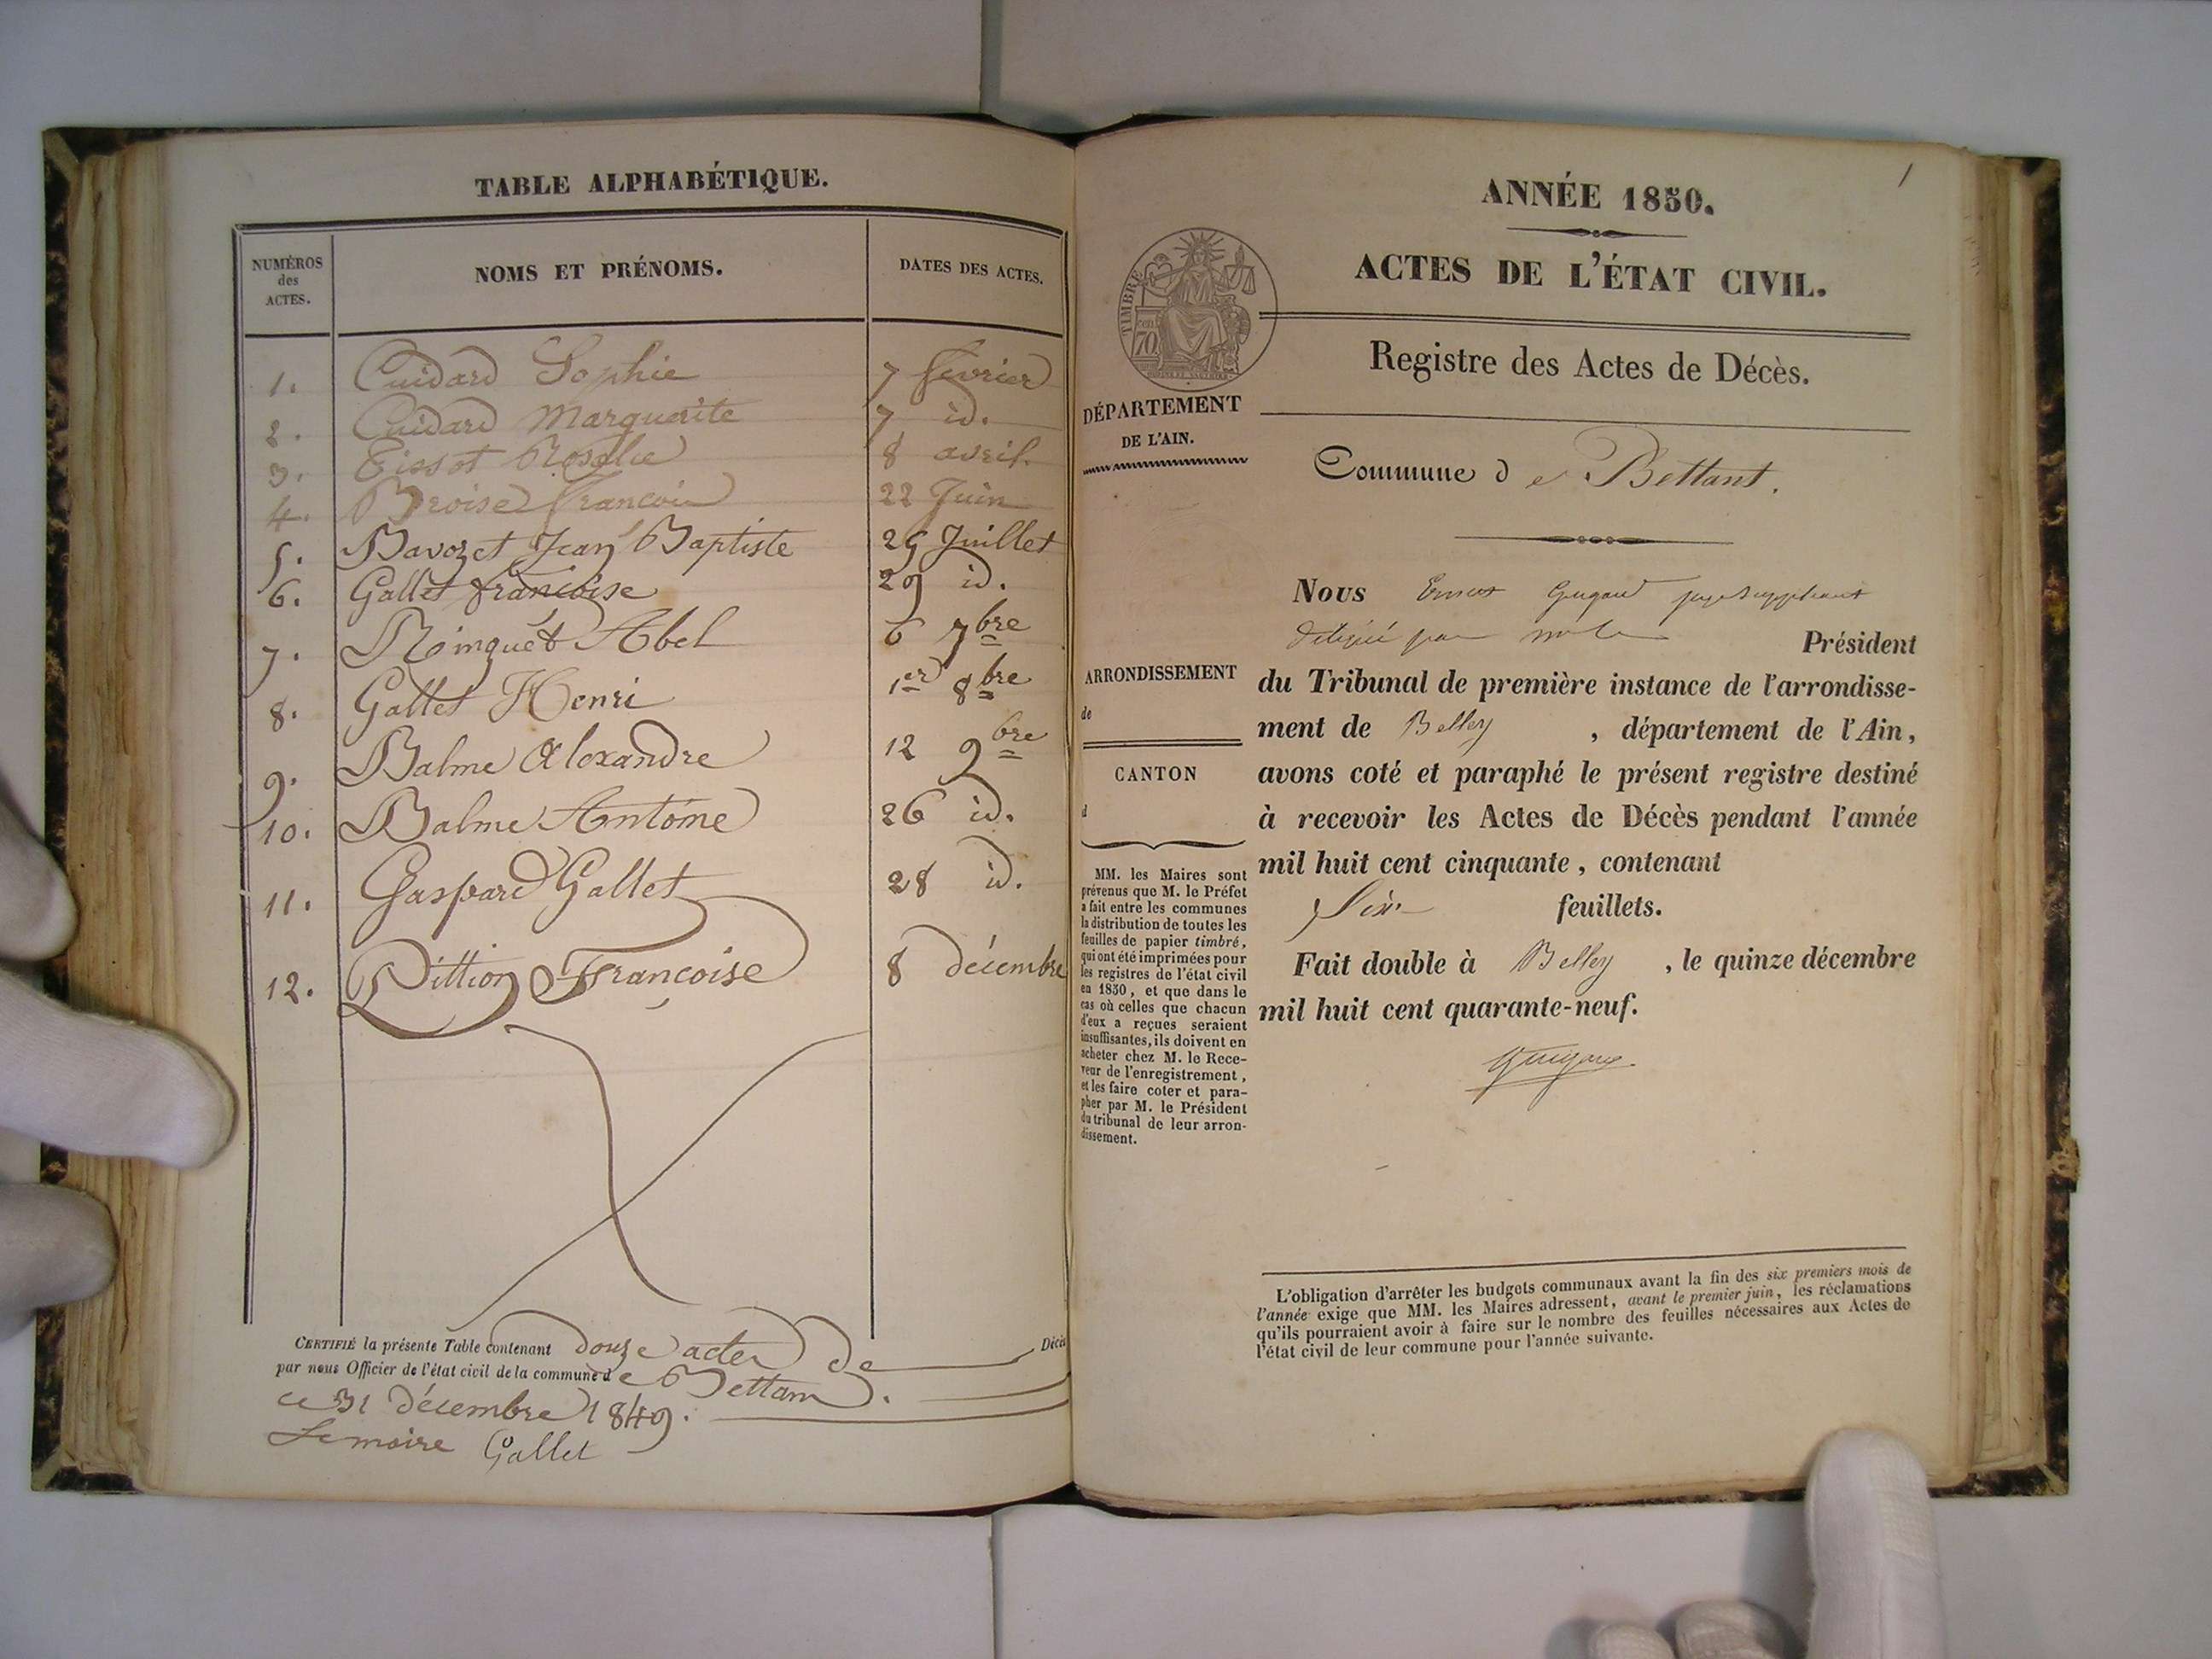 TABLE ALPHABÉTIQUE.
NUMÉROS des ACTES. NOMS ET PRÉNOMS. DATES DES ACTES.
1. Cuidard Sophie 7 février
2. Cuidard Marguerite 7 id.
3. Tissot Rosalie 8 avril.
4. Broise François 22 Juin
5. Bavozet Jean Baptiste 29 Juillet
6. Gallet françoise 29 id.
7. Ringuet Abel 6 7bre
8. Gallet Henri 1er 8bre
9. Balme Alexandre 12 9bre
10. Balme Antoine 26 id.
11. Gaspard Gallet 28 id.
12. Pittion Françoise 8 décembre
CERTIFIÉ la présente Table contenant douze actes de Décès
par nous Officier de l'état civil de la commune de Bettant.
ce 31 décembre 1849.
Le maire Gallet
1
ANNÉE 1850.
ACTES DE L'ÉTAT CIVIL.
TIMBRE
cen. 70
Registre des Actes de Décès.
DÉPARTEMENT
DE L'AIN.
Commune de Bettant.
ARRONDISSEMENT
de
CANTON
d
MM. les Maires sont
prévenus que M. le Préfet
a fait entre les communes
la distribution de toutes les
feuilles de papier timbré,
qui ont été imprimées pour
les registres de l'état civil
en 1850, et que dans le
cas où celles que chacun
d'eux a reçues seraient
insuffisantes, ils doivent en
acheter chez M. le Rece-
veur de l'enregistrement,
et les faire coter et para-
pher par M. le Président
du tribunal de leur arron-
dissement.
Nous juge suppléant
délégué par Président
du Tribunal de première instance de l'arrondisse-
ment de Belley, département de l'Ain,
avons coté et paraphé le présent registre destiné
à recevoir les Actes de Décès pendant l'année
mil huit cent cinquante, contenant
Six feuillets.
Fait double à Belley, le quinze décembre
mil huit cent quarante-neuf.
L'obligation d'arrêter les budgets communaux avant la fin des six premiers mois de
l'année exige que MM. les Maires adressent, avant le premier juin, les réclamations
qu'ils pourraient avoir à faire sur le nombre des feuilles nécessaires aux Actes de
l'état civil de leur commune pour l'année suivante.